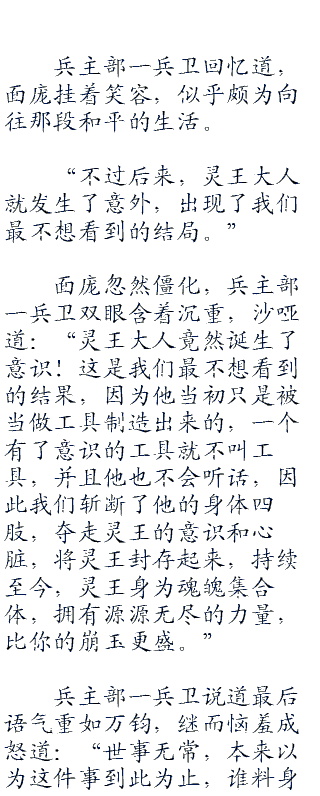 兵主部一兵卫回忆道，
面庞挂着笑容，似乎颇为向
往那段和平的生活。
“不过后来，灵王大人
就发生了意外，出现了我们
最不想看到的结局。”
面庞忽然僵化，兵主部
一兵卫双眼含着沉重，沙哑
道：“灵王大人竟然诞生了
意识！这是我们最不想看到
的结果，因为他当初只是被
当做工具制造出来的，一个
有了意识的工具就不叫工
具，并且他也不会听话，因
此我们斩断了他的身体四
肢，夺走灵王的意识和心
脏，将灵王封存起来，持续
至今，灵王身为魂魄集合
体，拥有源源无尽的力量，
比你的崩玉更盛。”
兵主部一兵卫说道最后
语气重如万钧，继而恼羞成
怒道：“世事无常，本来以
为这件事到此为止，谁料身